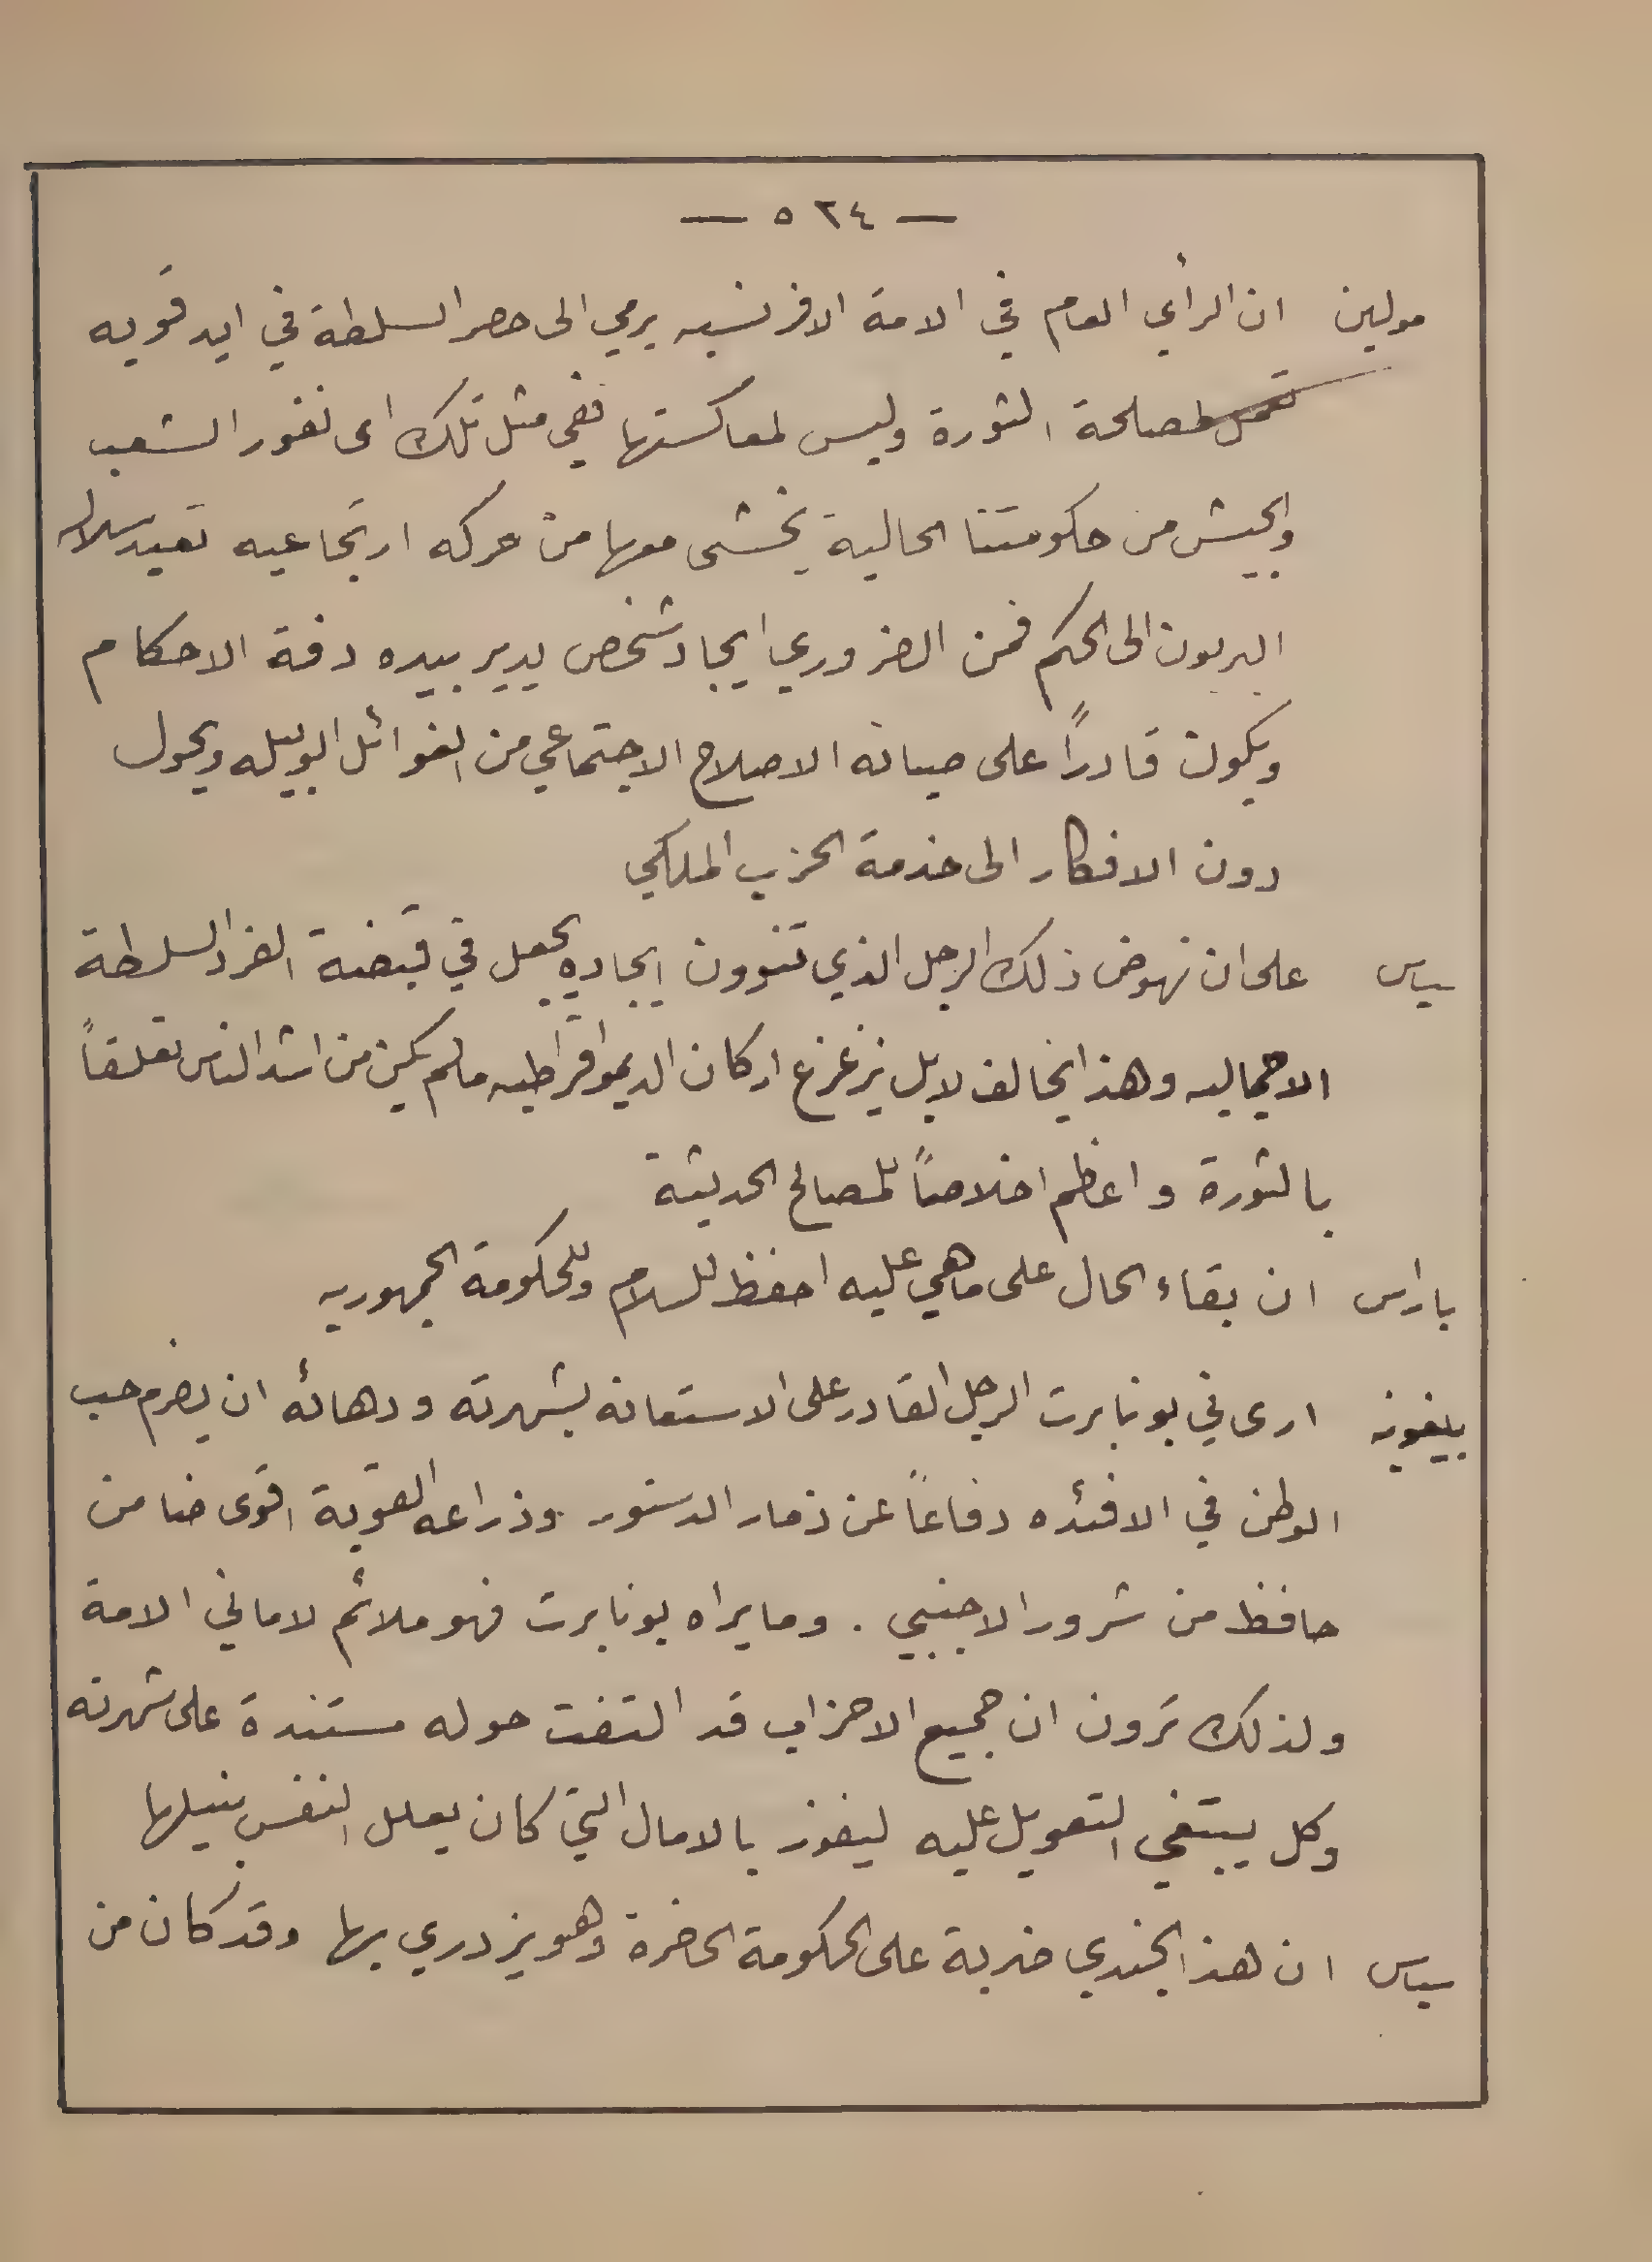 — ٥٢٤ —
مولين ان الرأي العام في الامة الافرنسيه يرمي الى حصر السلطة في ايد قويه
تعمل لمصلحة الثورة وليس لمعاكستها ففي مثل تلك ارى نفور الشعب
والجيش من حكومتنا الحالية يخشى معها من حركه ارتجاعيه تعيد سلاله
البربون الى الحكم فمن الضروري ايجاد شخص يدير بيده دفة الاحكام
ويكون قادراً على صيانه الاصلاح الاجتماعي من الغوائل الوبيله ويحول
دون الافكار الى خدمة الحزب الملكي
سياس على ان نهوض ذلك الرجل الذي تنوون ايجاده يجعل في قبضة الفرد السلطة
الاجماليه وهذا يخالف لا بل يزعزع اركان الديموقراطيه مالم يكن من اشد الناس تعلقاً
بالثورة واعظم اخلاصاً للمصالح الحديثة
باراس ان بقاء الحال على ماهي عليه احفظ للسلام وللحكومة الجمهوريه
بيغونه ارى في بونابرت الرجل القادر على الاستعانه بشهرته ودهائه ان يضرم حب
الوطن في الافئده دفاعاً عن ذمار الدستور وذراعه القوية اقوى ضامن
حافظ من شرور الاجنبي . وما يراه بونابرت فهو ملائم لاماني الامة
ولذلك ترون ان جميع الاحزاب قد التفت حوله مستندة على شهرته
وكل يبتغي التعويل عليه ليفوز بالامال التي كان يعلل النفس بنيلها
سياس ان هذا الجندي ضربة على الحكومة الحاضرة وهو يزدري بها وقد كان من